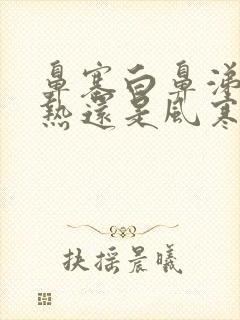 鼻塞白鼻涕
熱還是風寒
扶摇晨曦